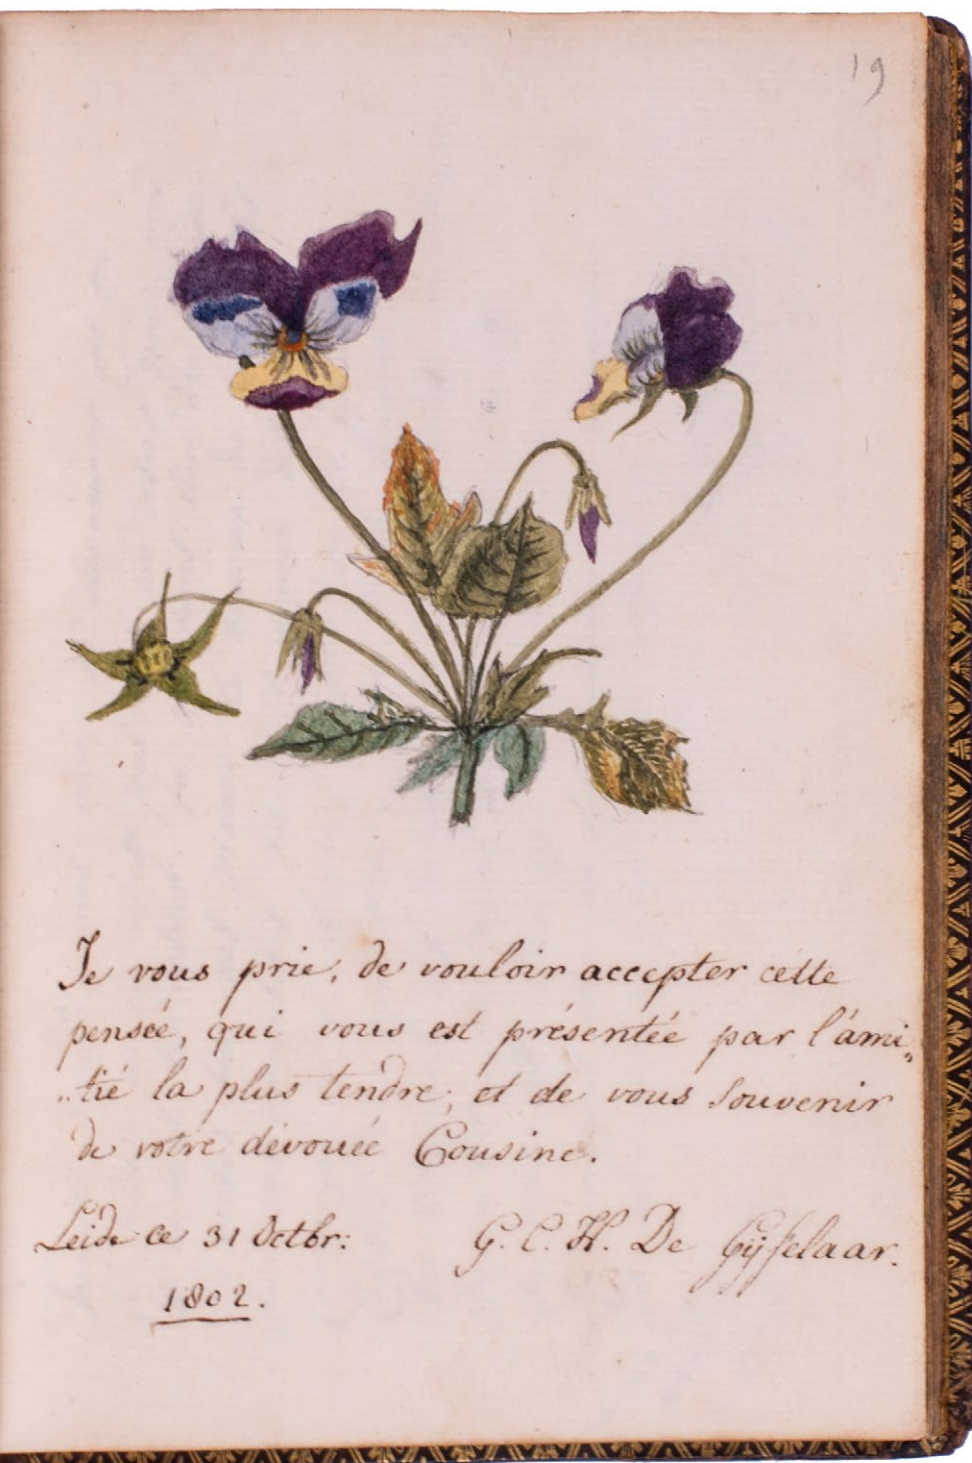 19
Je vous prie, de vouloir accepter cette
penséé, qui vous est présentéé par l'ámi„
„tié la plus tendre, et de vous souvenir
de votre dévouéé Cousine.
Leide ce 31 Octbr:
1802.
G. C. H. De Gijselaar.